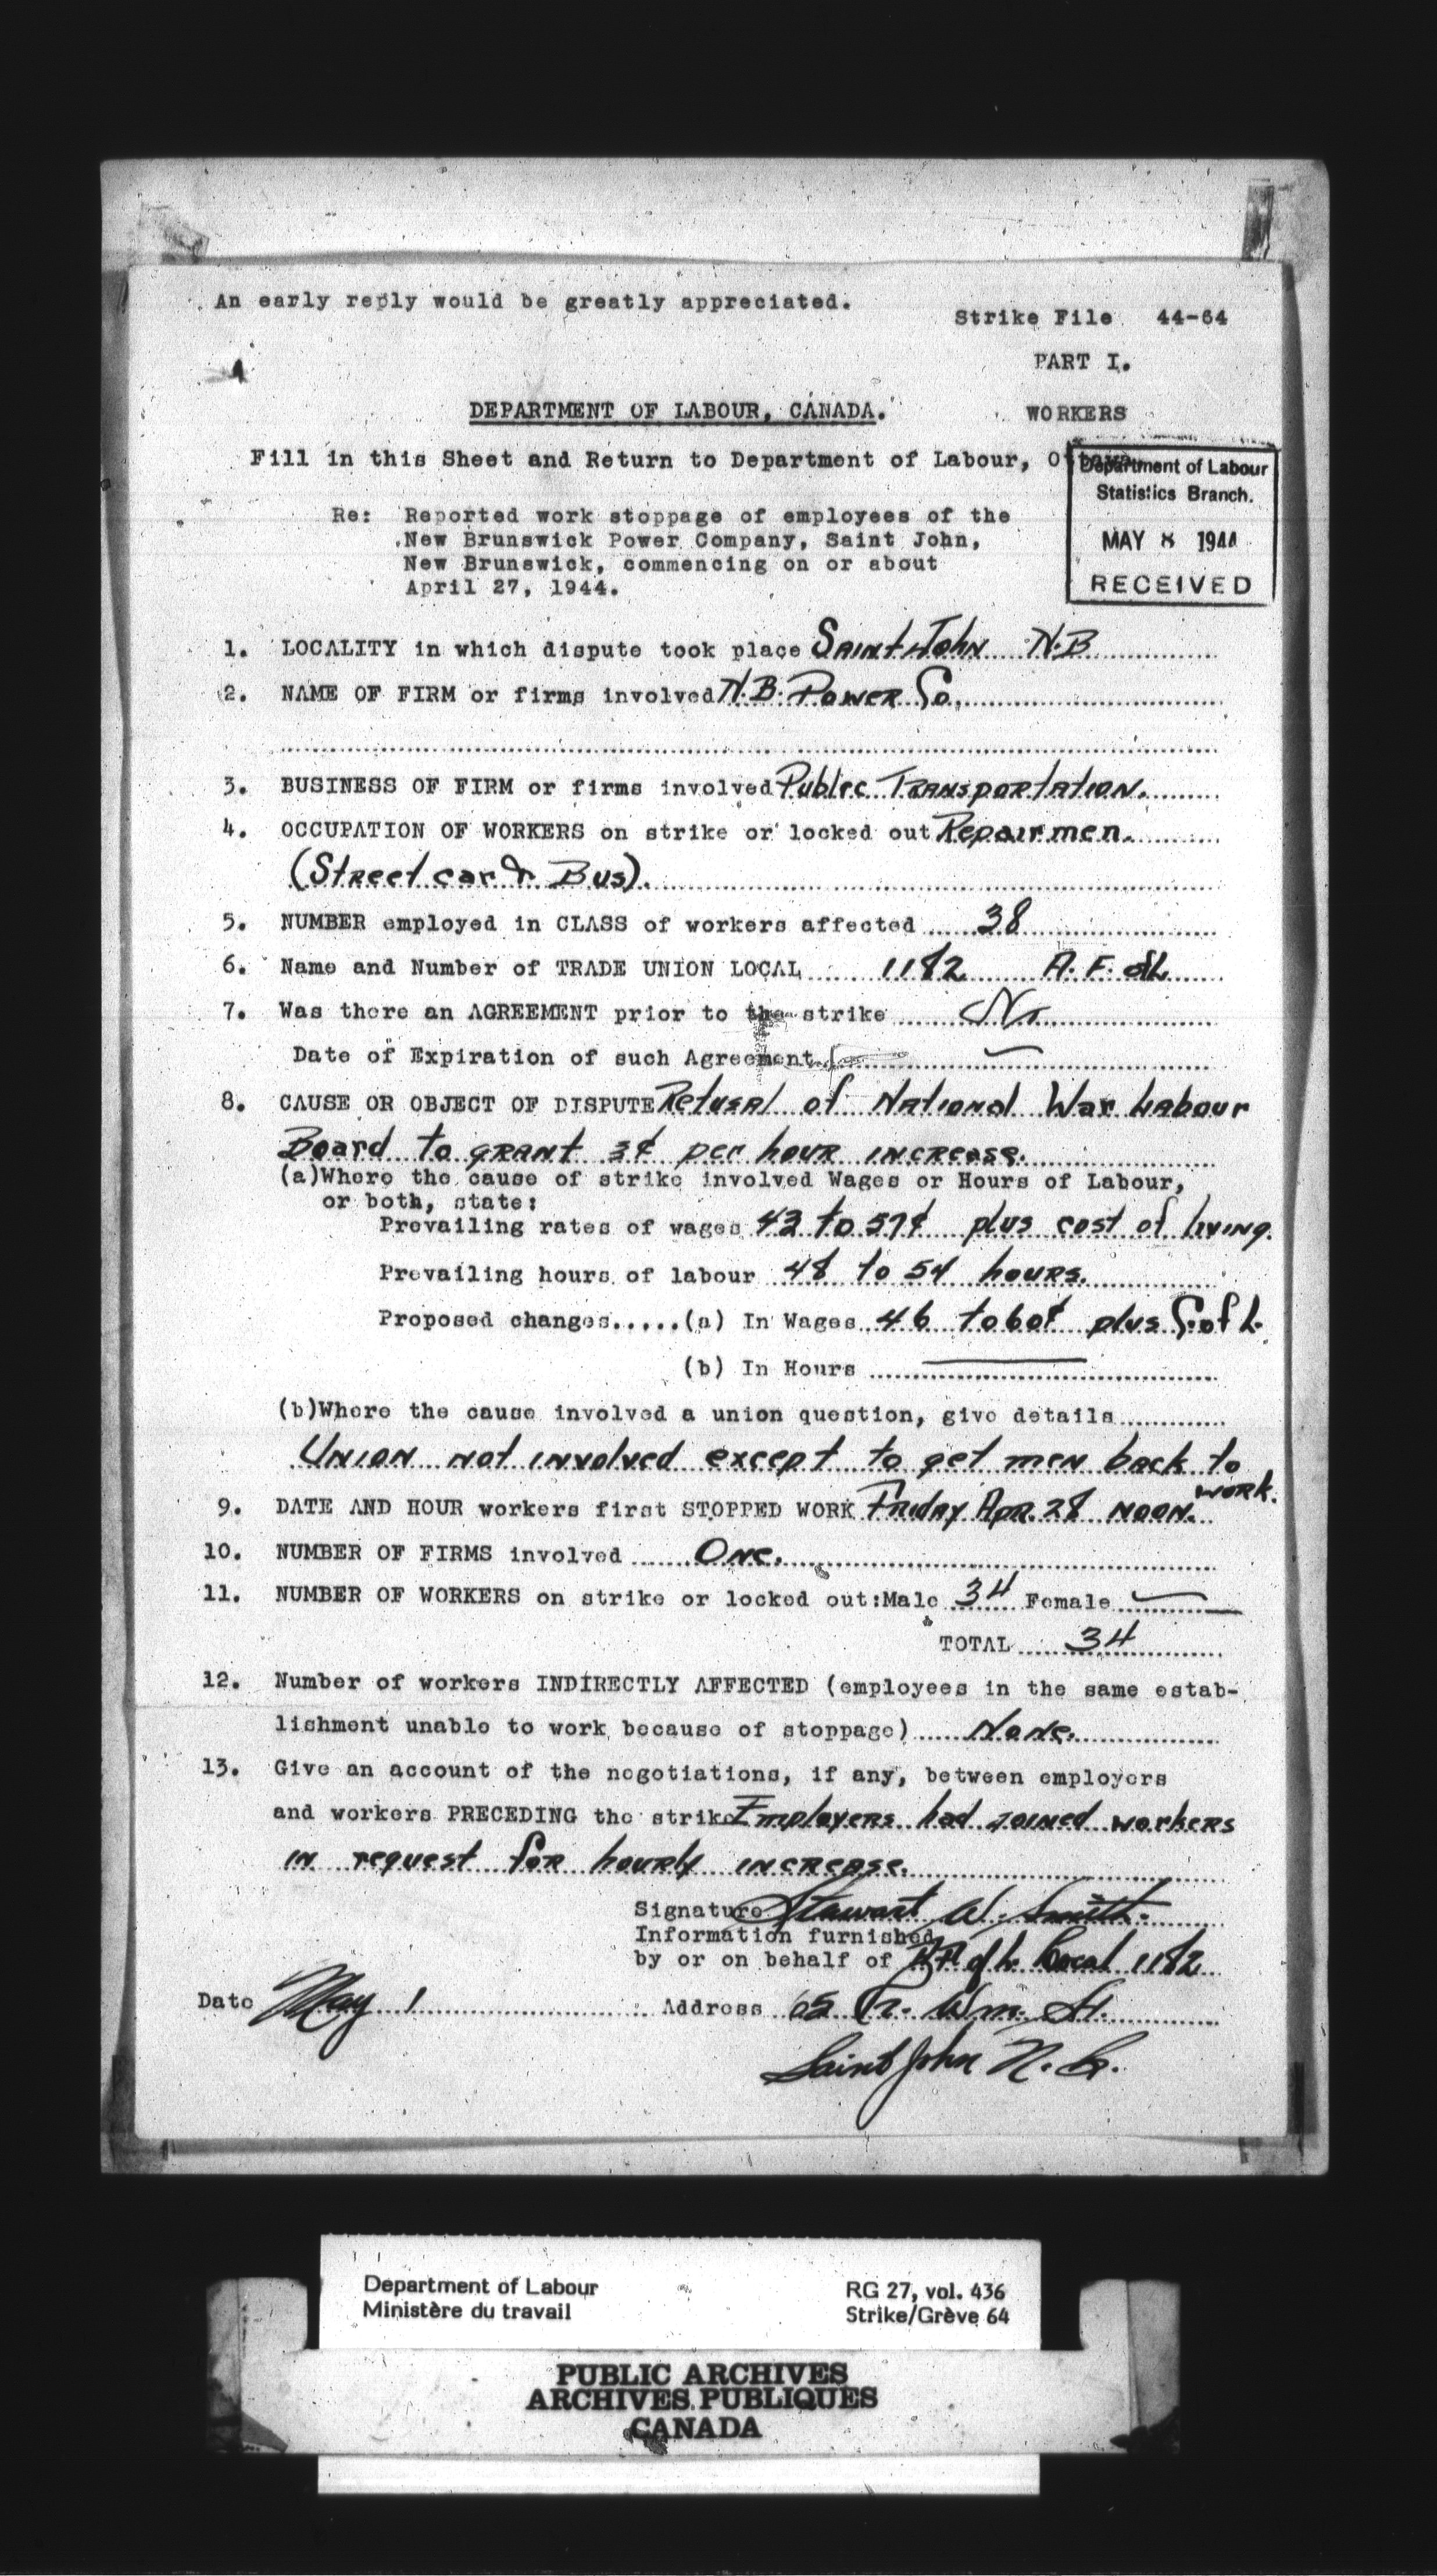 An early reply would be greatly appreciated.
Strike File 44-64
PART I.
DEPARTMENT OF LABOUR, CANADA.
WORKERS
Fill in this Sheet and Return to Department of Labour, Ottawa.
Department of Labour
Statistics Branch.
MAY 8 1944
RECEIVED
Re: Reported work stoppage of employees of the
New Brunswick Power Company, Saint John,
New Brunswick, commencing on or about
April 27, 1944.
1. LOCALITY in which dispute took place Saint John N.B
2. NAME OF FIRM or firms involved N.B. Power Co.
3. BUSINESS OF FIRM or firms involved Public Transportation.
4. OCCUPATION OF WORKERS on strike or locked out Repairmen.
(Street car & Bus).
5. NUMBER employed in CLASS of workers affected 38
6. Name and Number of TRADE UNION LOCAL 1182 A. F. of L
7. Was there an AGREEMENT prior to the strike No
Date of Expiration of such Agreement
8. CAUSE OR OBJECT OF DISPUTE Refusal of National War Labour
Board to grant 3¢ per hour increase.
(a)Where the cause of strike involved Wages or Hours of Labour,
or both, state:
Prevailing rates of wages 43 to 57¢ plus cost of living.
Prevailing hours of labour 48 to 54 hours.
Proposed changes.....(a) In Wages 46 to 60¢ plus C. of L.
(b) In Hours
(b)Where the cause involved a union question, give details
Union not involved except to get men back to
work.
9. DATE AND HOUR workers first STOPPED WORK Friday Apr. 28 noon.
10. NUMBER OF FIRMS involved One.
11. NUMBER OF WORKERS on strike or locked out:Male 34 Female
TOTAL 34
12. Number of workers INDIRECTLY AFFECTED (employees in the same estab-
lishment unable to work because of stoppage) None.
13. Give an account of the negotiations, if any, between employers
and workers PRECEDING the strike Employers had joined workers
in request for hourly increase.
Signature Stewart W. Smith.
Information furnished
by or on behalf of of L. Local 1182
Date May 1 Address 65 Pr. Wm. St.
Saint John N. B.
Department of Labour
Ministère du travail
RG 27, vol. 436
Strike/Grève 64
PUBLIC ARCHIVES
ARCHIVES PUBLIQUES
CANADA